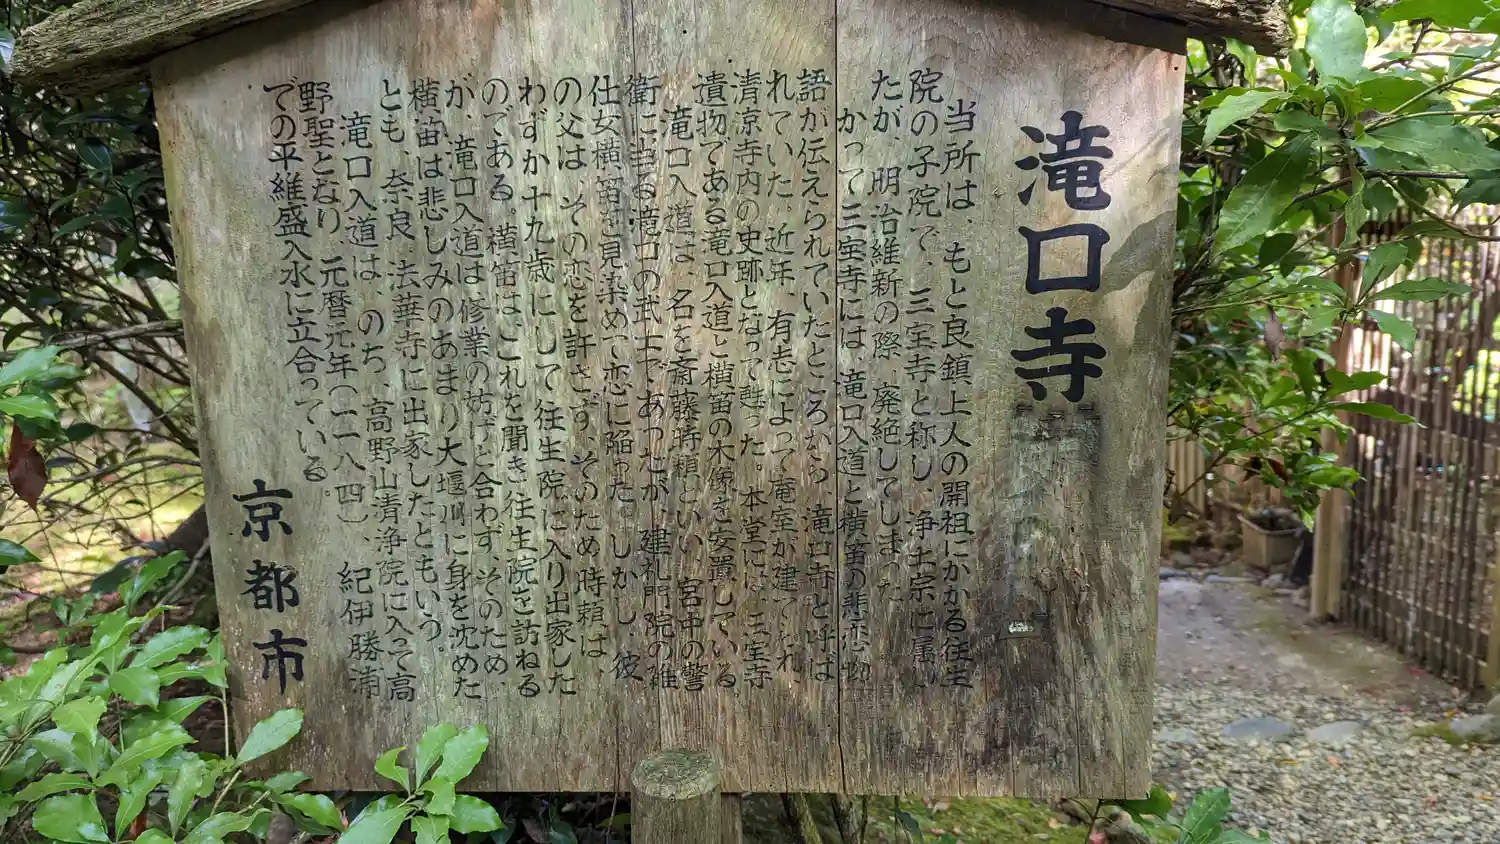 滝口寺
当所は、もと良鎮上人の開祖にかかる往生
院の子院で、三宝寺と称し、浄土宗に属し
たが、明治維新の際、廃絶してしまった
かって三宝寺には、滝口入道と横笛の悲恋物
語が伝えられていたところから、滝口寺と呼ば
れていた。近年、有志によって庵室が建てられ
清涼寺内の史跡となって甦った。本堂には三宝寺
遺物である滝口入道と横笛の木像を安置している。
滝口入道は、名を斎藤時頼といい、宮中の警
衛に当る滝口の武士であったが、建礼門院の雑
仕女横笛を見染めて恋に陥った。しかし、彼
の父は、その恋を許さず、そのため時頼は
わずか十九歳にして往生院に入り出家した
のである。横笛は、これを聞き往生院を訪ねる
が、滝口入道は修業の妨げと会わず、そのため
横笛は悲しみのあまり大堰川に身を沈めた
とも、奈良 法華寺に出家したともいう。
滝口入道は のち、高野山清浄院に入って高
野聖となり、元暦元年(一一八四)、紀伊勝浦
での平維盛入水に立合っている。
京都市